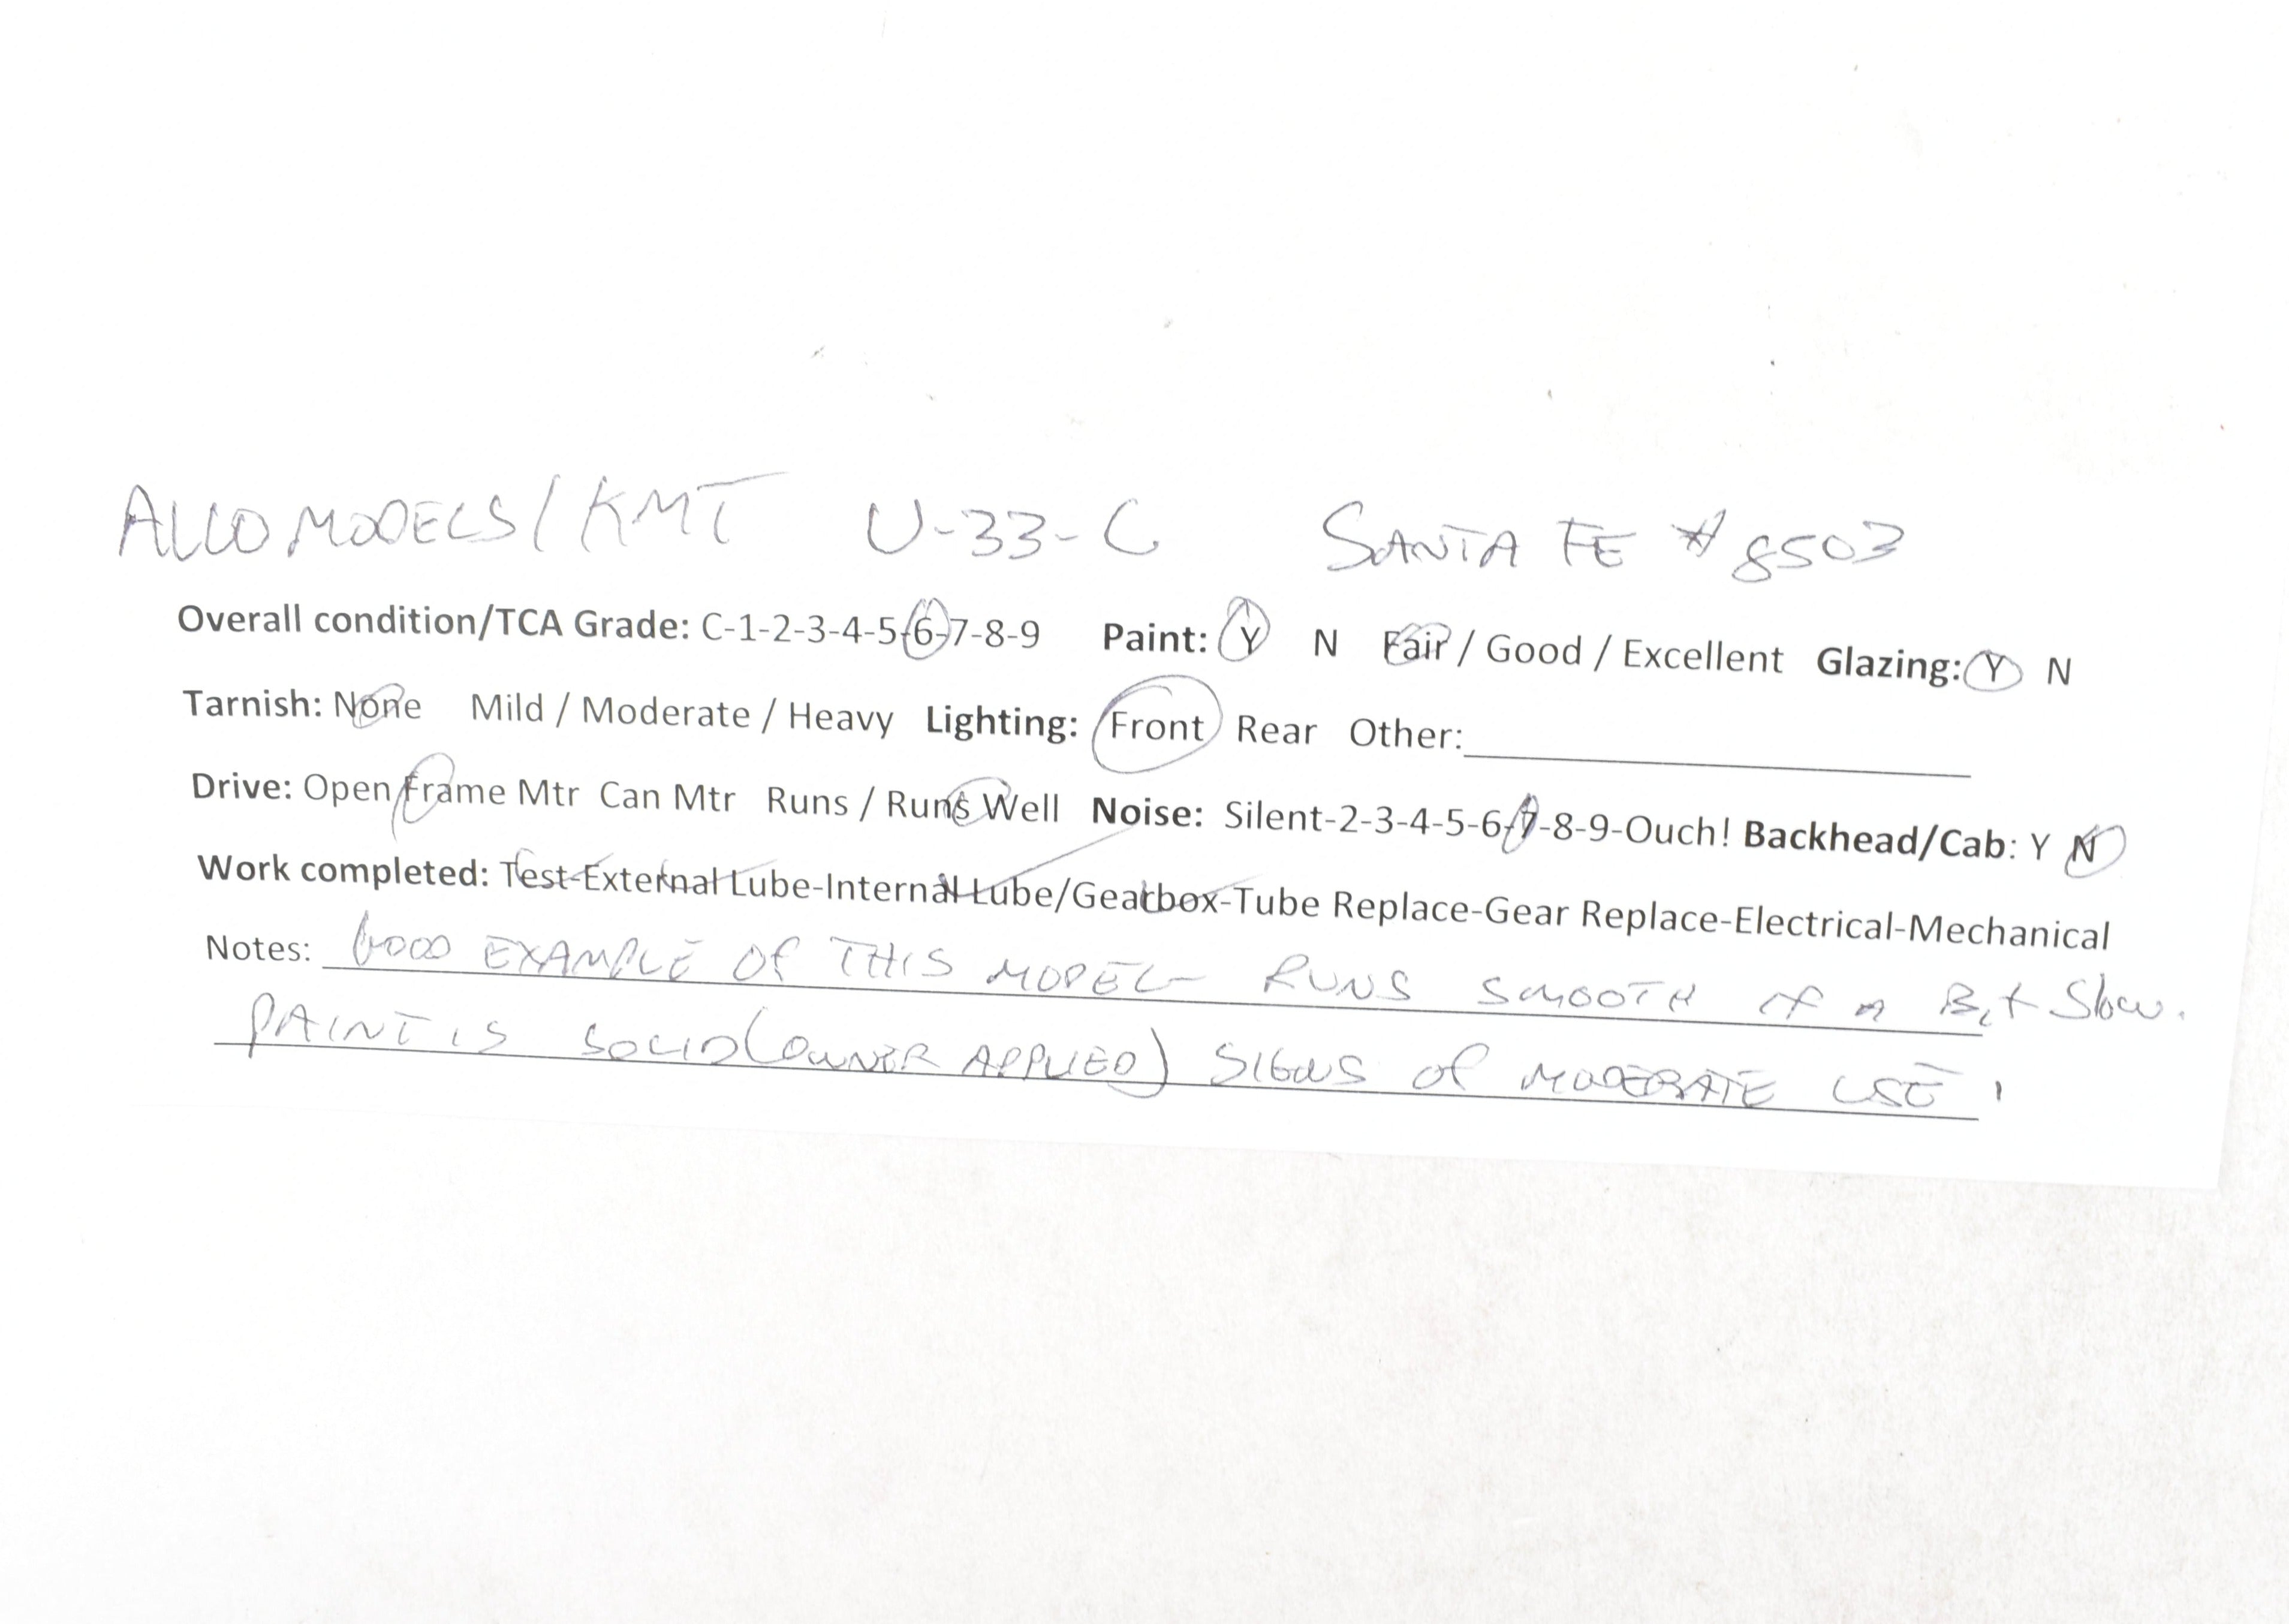 ALCO MODELS/KMT U-33-C SANTA FE #8503
Overall condition/TCA Grade: C-1-2-3-4-5-6-7-8-9 Paint: Y N Fair / Good / Excellent Glazing: Y N
Tarnish: None Mild / Moderate / Heavy Lighting: Front Rear Other:
Drive: Open frame Mtr Can Mtr Runs / Runs Well Noise: Silent-2-3-4-5-6-7-8-9-Ouch! Backhead/Cab: Y N
Work completed: Test-External Lube-Internal Lube/Gearbox-Tube Replace-Gear Replace-Electrical-Mechanical
Notes: GOOD EXAMPLE OF THIS MODEL- RUNS SMOOTH IF A Bit Slow.
PAINT IS SOLID (OWNER APPLIED) SIGNS OF MODERATE USE.